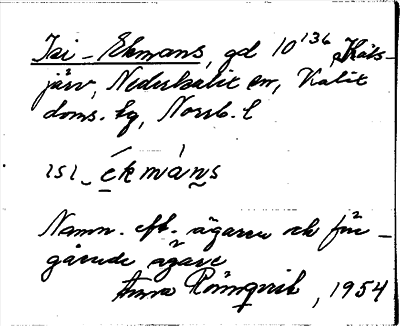 Isi - Ekmans, gd 10¹³⁶, Räks-
järv, Nederkalix sn, Kalix
doms. hg, Norrb. l
ɩsɩ_ ékmàns
Namn. eft. ägaren och före-
gående ägare
Anna Rönnqvik, 1954